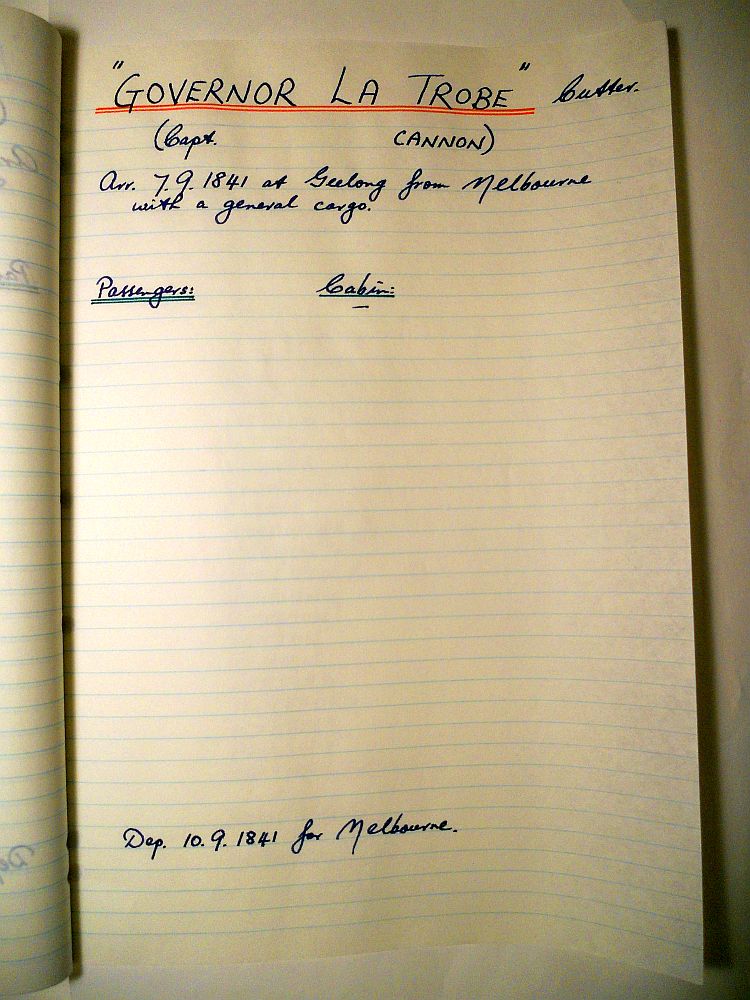 "GOVERNOR LA TROBE" Cutter.
(Capt. CANNON)
Arr. 7.9.1841 at Geelong from Melbourne
with a general cargo.
Passengers: Cabin:
—
Dep. 10.9.1841 for Melbourne.